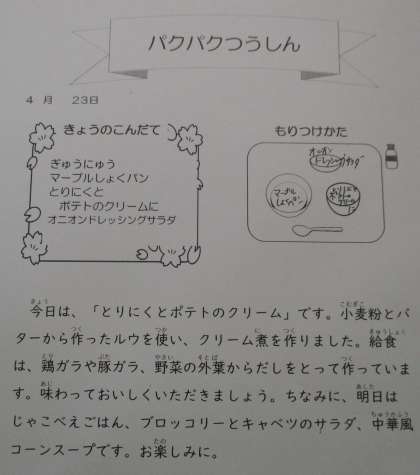 パクパクつうしん
4 月 23日
きょうのこんだて
ぎゅうにゅう
マーブルしょくパン
とりにくと
ポテトのクリームに
オニオンドレッシングサラダ
もりつけかた
オニオン
ドレッシングサラダ
マーブル
しょくパン
とりにくと
ポテトの
クリーム
に
今日は、「とりにくとポテトのクリーム」です。小麦粉とバ
ターから作ったルウを使い、クリーム煮を作りました。給食
は、鶏ガラや豚ガラ、野菜の外葉からだしをとって作っていま
す。味わっておいしくいただきましょう。ちなみに、明日は
じゃこべえごはん、ブロッコリーとキャベツのサラダ、中華風
コーンスープです。お楽しみに。